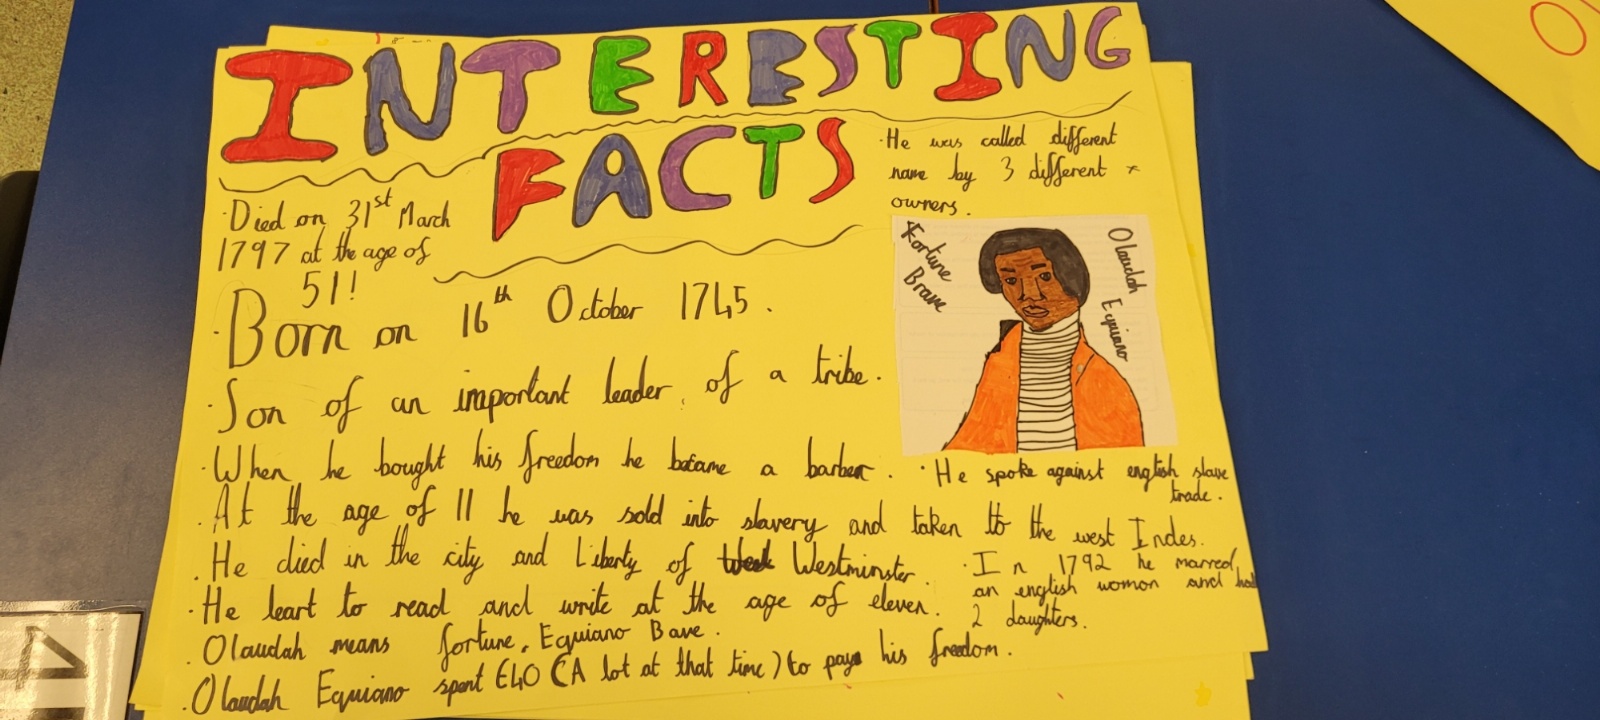 INTERESTING
FACTS
·Died on 31st March
1797 at the age of
51!
·Born on 16th October 1745.
·Son of an important leader of a tribe.
·When he bought his freedom he became a barber.
·At the age of 11 he was sold into slavery and taken to the west Indes.
·He died in the city and Liberty of Westminster.
·He leart to read and write at the age of eleven.
·Olaudah means fortune, Equiano Bave.
·Olaudah Equiano spent £40 (A lot at that time) to pay his freedom.
·He was called different
name by 3 different
owners.
Fortune
Brave
Olaudah
Equiano
·He spoke against english slave
trade.
·In 1792 he marred
an english woman and had
2 daughters.